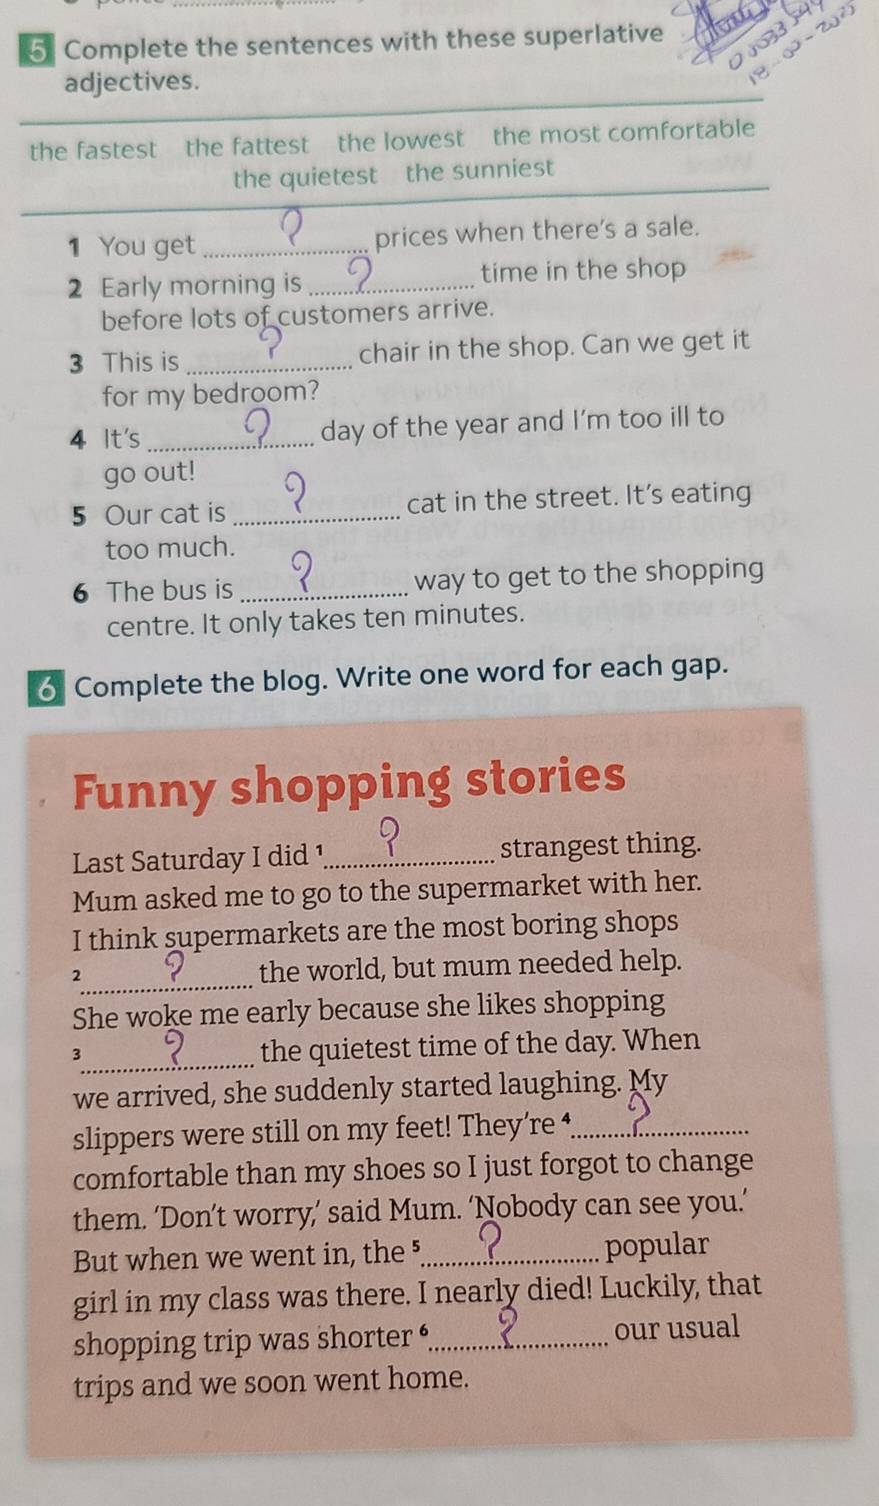 5 Complete the sentences with these superlative
adjectives.
the fastest the fattest the lowest the most comfortable
the quietest the sunniest
1 You get ? prices when there's a sale.
2 Early morning is ? time in the shop
before lots of customers arrive.
3 This is ? chair in the shop. Can we get it
for my bedroom?
4 It's ? day of the year and I'm too ill to
go out!
5 Our cat is ? cat in the street. It's eating
too much.
6 The bus is ? way to get to the shopping
centre. It only takes ten minutes.
6 Complete the blog. Write one word for each gap.
Funny shopping stories
Last Saturday I did ¹ ? strangest thing.
Mum asked me to go to the supermarket with her.
I think supermarkets are the most boring shops
² ? the world, but mum needed help.
She woke me early because she likes shopping
³ ? the quietest time of the day. When
we arrived, she suddenly started laughing. My
slippers were still on my feet! They're ⁴ ?
comfortable than my shoes so I just forgot to change
them. 'Don't worry,' said Mum. 'Nobody can see you.'
But when we went in, the ⁵ ? popular
girl in my class was there. I nearly died! Luckily, that
shopping trip was shorter ⁶ ? our usual
trips and we soon went home.